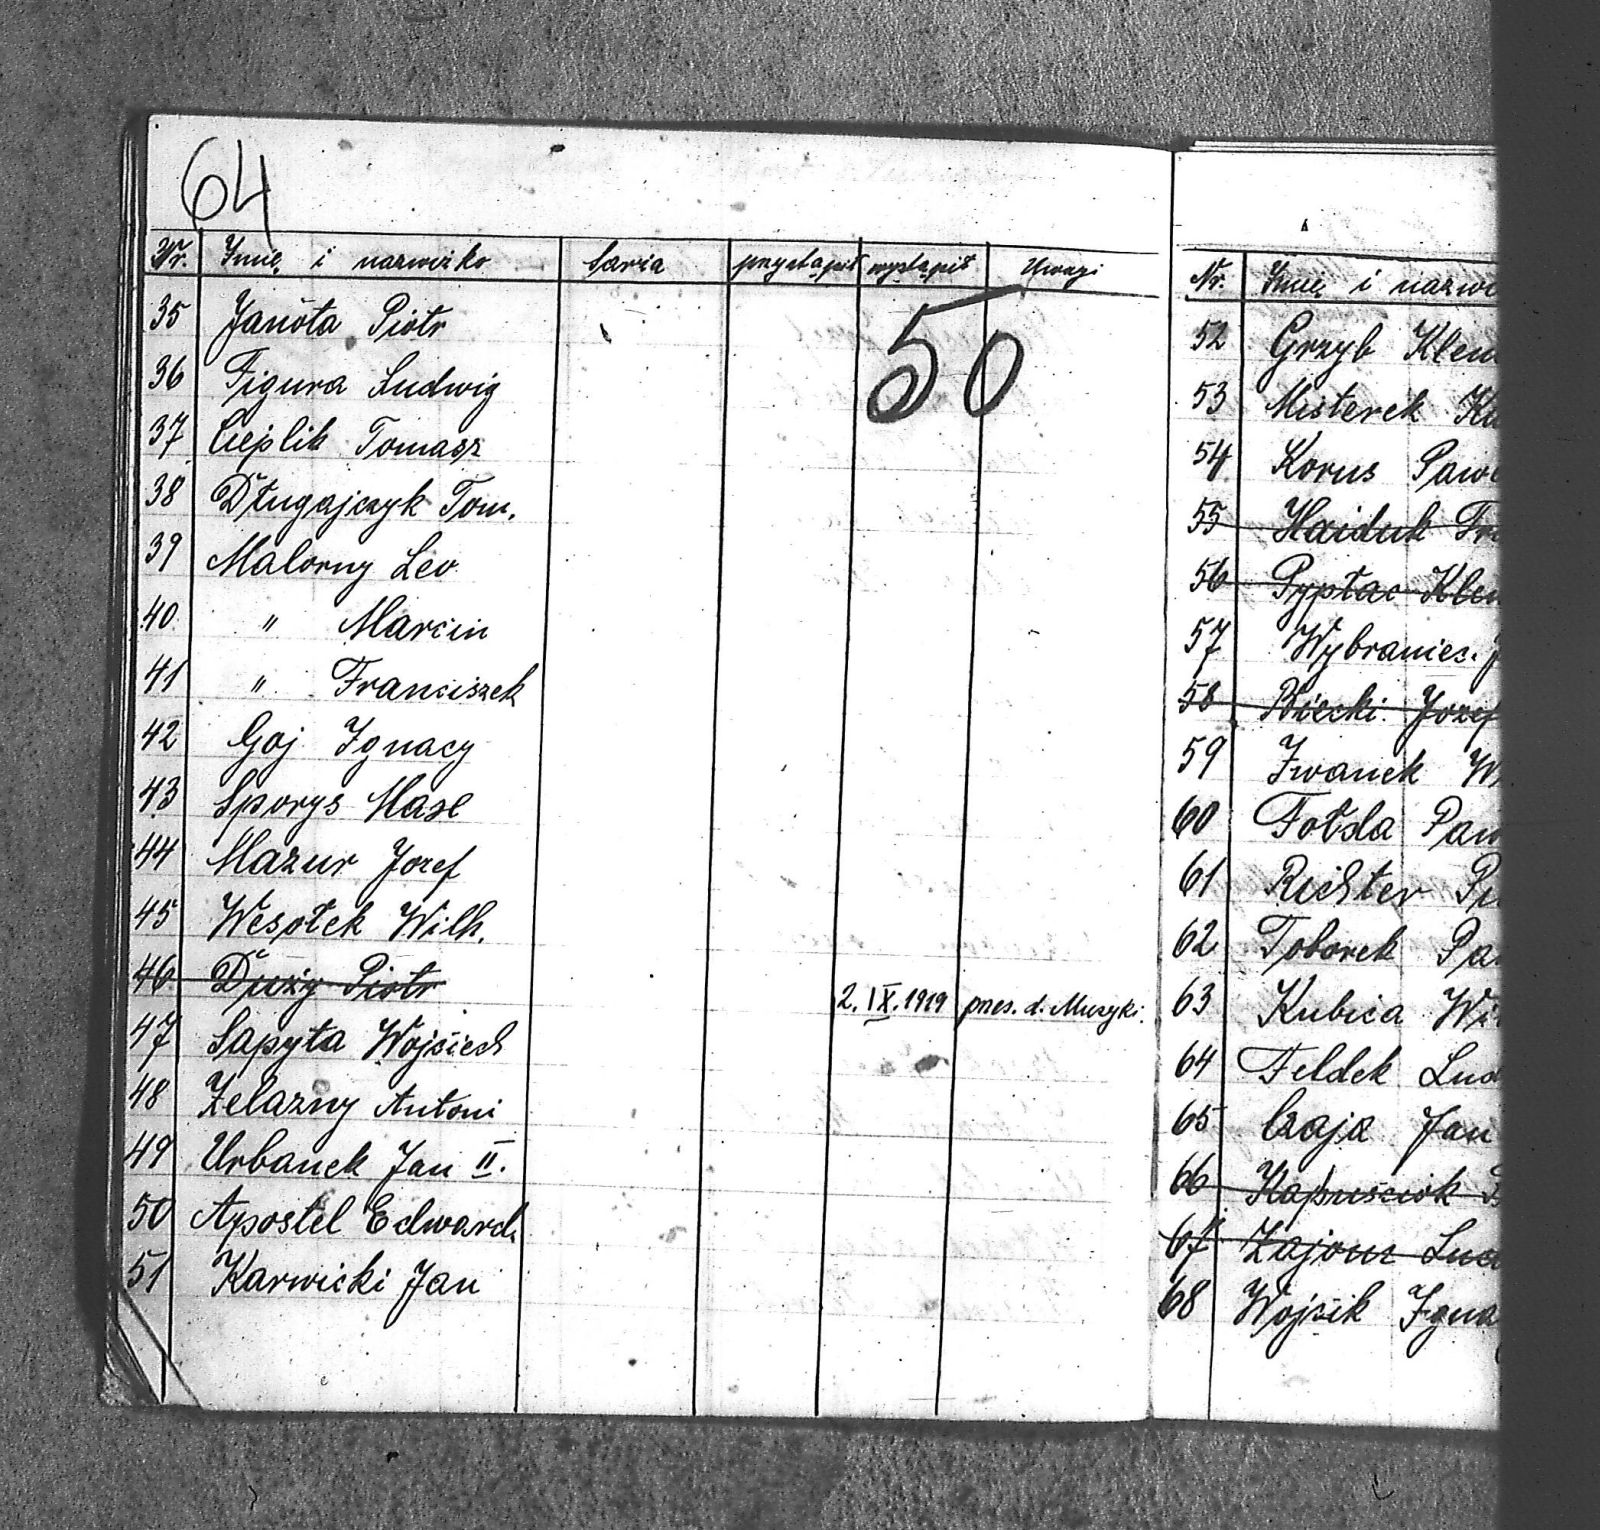 64
Nr. Imię i nazwisko Szarża przystąpił wystąpił Uwagi
50
35 Janota Piotr
36 Figura Ludwig
37 Cieplik Tomasz
38 Długajczyk Tom.
39 Malorny Leo
40 " Marcin
41 " Franciszek
42 Goj Ignacy
43 Sporys Maks
44 Mazur Jozef
45 Wesołek Wilh.
46 Duży Piotr 2. IX. 1919 pnes. d. Muzyki.
47 Sapyta Wojciech
48 Żelazny Antoni
49 Urbanek Jan II.
50 Apostel Edward.
51 Karwicki Jan
Nr. Imię i nazwi
52 Grzyb Klem
53 Misterek
54 Korus Pawe
55 Haiduk Fr
56 Pyptac Klem
57 Wybraniec. J
58 Jozef
59 Iwanek W
60 Fołda Paw
61 Richter
62 Toborek Pa
63 Kubica Wi
64 Feldek Lud
65 Czaja Jan
66 Kapuściok
67 Zajonz Lud
68 Wojcik Igna